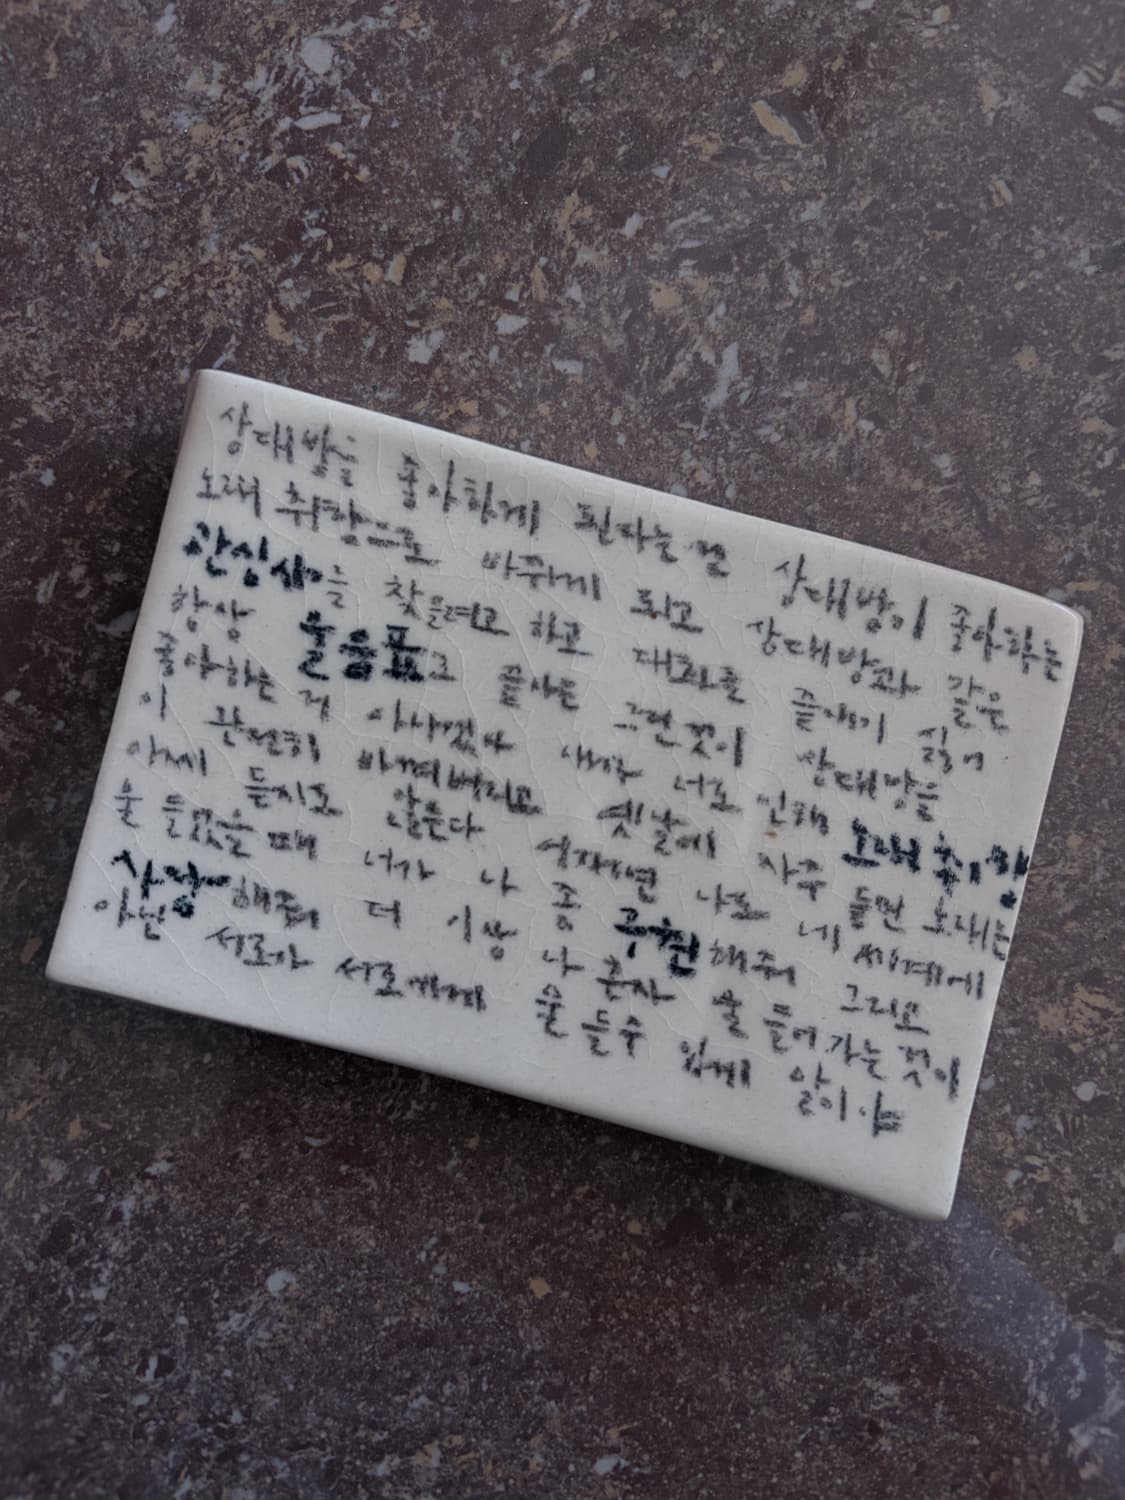 상대방을 좋아하게 된다는 건 상대방이 좋아하는
노래 취향으로 바뀌게 되고 상대방과 같은
관심사를 찾을려고 하고 대화를 끝내기 싫어
항상 물음표로 끝나는 그런 것이 상대방을
좋아하는 게 아니겠나 내가 너로 인해 노래 취향
이 완전히 바껴버리고 옛날에 자주 듣던 노래는
아예 듣지도 않는다 나도 네 세계에
물 들었을 때 너가 나 좀 구현해줘 그리고
사랑해줘 더 이상 나 혼자 물 들어가는 것이
아닌 서로가 서로에게 물 들수 있게 말이야